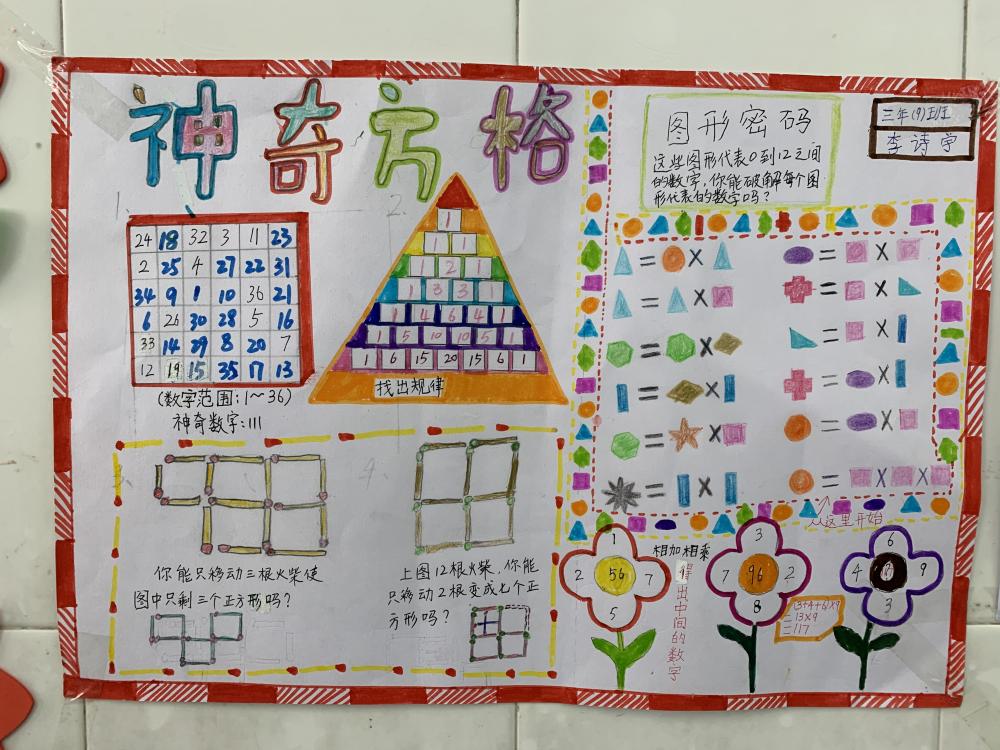 神奇方格
1.
24 18 32 3 11 23
2 25 4 27 22 31
34 9 1 10 36 21
6 26 30 28 5 16
33 14 29 8 20 7
12 19 15 35 17 13
(数字范围:1~36)
神奇数字:111
2.
1
1 1
1 2 1
1 3 3 1
1 4 6 4 1
1 5 10 10 5 1
1 6 15 20 15 6 1
找出规律
你能只移动三根火柴使
图中只剩三个正方形吗?
4.
上图12根火柴,你能
只移动2根变成七个正
方形吗?
图形密码
这些图形代表0到12之间
的数字,你能破解每个图
形代表的数字吗?
三年(9)班
李诗学
= ×
= ×
= ×
= ×
= ×
= ×
= ×
= ×
= ×
= ×
= ×
= × ×
从这里开始
1
2 56 7
5
相加相乘
得出中间的数字
3
7 96 2
8
(3+4+6)×9
=13×9
=117
6
4 9
3